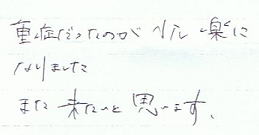 重症だったのが少し楽に
なりました
また来たいと思います。